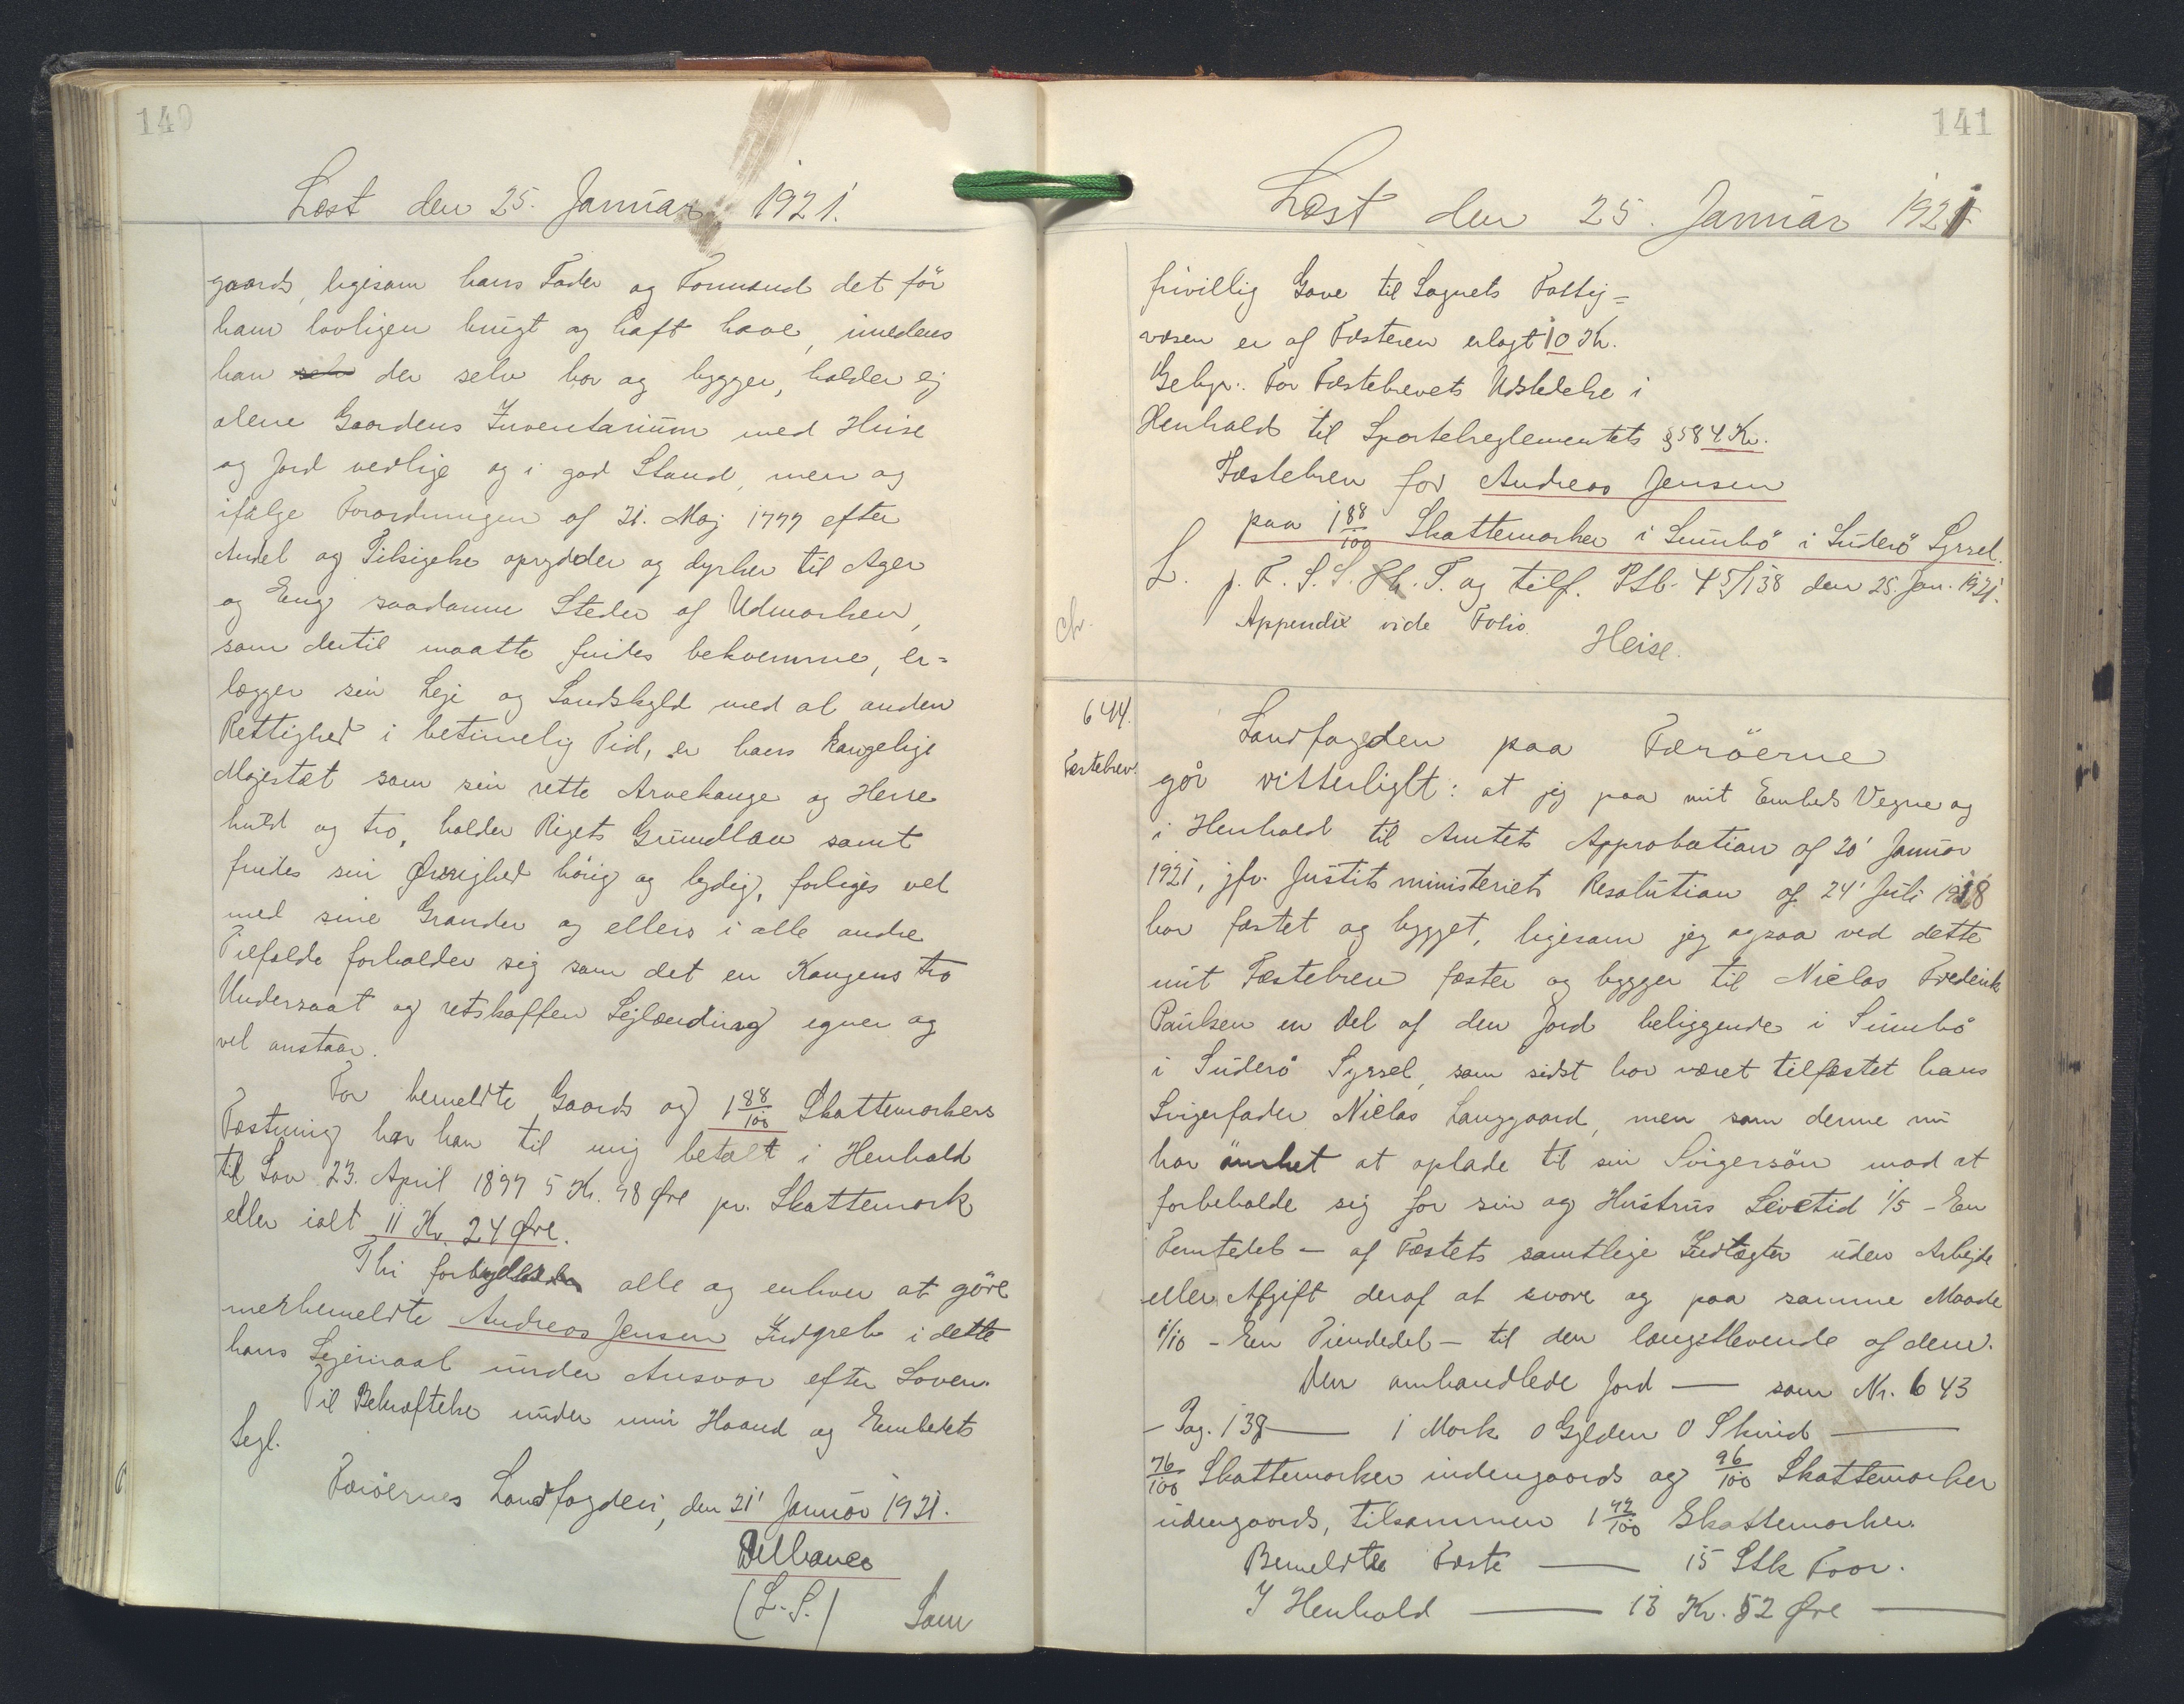 140
Læst den 25. Januar 1921.
gaards, ligesom hans Fader og Formænd det før
ham lovligen brugt og haft have, imedens
han selv der selv bor og bygger, holder ej
alene Gaardens Inventarium med Huse
og Jord vedlige og i god Stand, men og
ifølge Forordningen af 21. Maj 1777 efter
Andel og Tilsigelse oprydder og dyrker til Ager
og Eng saadanne Steder af Udmarken,
som dertil maatte findes bekvemme, er=
lægger sin Leje og Landskyld med al anden
Rettighed i betimelig Tid, er hans kongelige
Majestæt som sin rette Arvekonge og Herre
huld og tro, holder Rigets Grundlov samt
findes sin Øvrighed hørig og lydig, forliges vel
med sine Grander og ellers i alle andre
Tilfælde forholder sig som det en Kongens tro
Undersaat og retskaffen Lejlænding egner og
vel anstaar.
For bemeldte Gaards og 1 88/100 Skattemarkers
Fæstning har han til mig betalt i Henhold
til Lov 23. April 1897 5 Kr. 98 Øre pr. Skattemark
eller ialt 11 Kr. 24 Øre.
Thi forbydes alle og enhver at gøre
merbemeldte Andreas Jensen Indgreb i dette
hans Lejemaal under Ansvar efter Loven.
Til Bekræftelse under min Haand og Embedets
Segl.
Færøernes Landfogderi, den 21' Januar 1921.
(L.S.) Som
141
Læst den 25. Januar 1921
frivillig Gave til Sognets Fattig=
væsen er af Fæsteren erlagt 10 Kr.
Gebyr. For Fæstebrevets Udstedelse i
Henhold til Sportelreglementets § 58 4 Kr.
Fæstebrev for Andreas Jensen
paa 1 88/100 Skattemarker i Sumbø i Suderø Syssel.
L. p. F. S. S. T. og tilf. Ptb. 45/138 den 25. Jan. 1921.
Appendix vide Folio
Heise.
644.
Fæstebrev.
Landfogden paa Færøerne
gør vitterligt: at jeg paa mit Embeds Vegne og
i Henhold til Amtets Approbation af 20' Januar
1921, jfr. Justitsministeriets Resolution af 24' Juli 1918
har fæstet og bygget, ligesom jeg ogsaa ved dette
mit Fæstebrev fæster og bygger til Niclas Frederik
Paulsen en Del af den Jord beliggende i Sumbø
i Suderø Syssel, som sidst har været tilfæstet hans
Svigerfader Niclas Langgaard, men som denne nu
har ønsket at oplade til sin Svigersøn mod at
forbeholde sig for sin og Hustrus Levetid 1/5 - En
Femtedel - af Fæstets samtlige Indtægter uden Arbejde
eller Afgift deraf at svare og paa samme Maade
1/10 - En Tiendedel - til den længstlevende af dem.
Den omhandlede Jord — som Nr. 643
- Pag. 138 — 1 Mark 0 Gylden 0 Skind —
76/100 Skattemarker indengaards og 96/100 Skattemarker
udengaards, tilsammen 1 72/100 Skattemarker.
Bemeldte Fæste — 15 Stk Faar.
I Henhold — 13 Kr. 52 Øre —